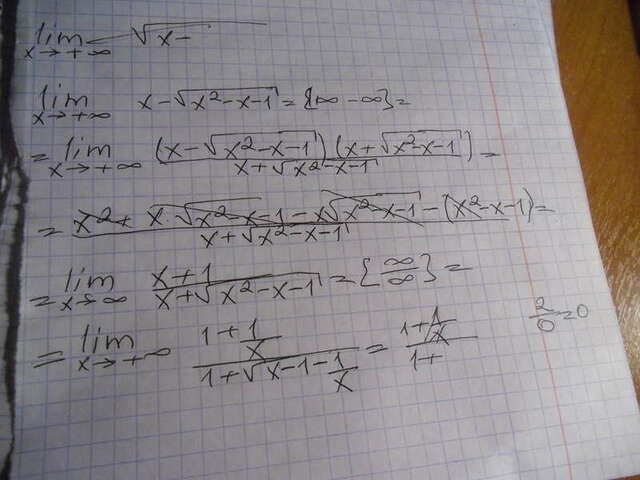 lim x→+∞ √x-
lim x→+∞ x-√(x²-x-1) = {∞-∞} =
= lim x→+∞ (x-√(x²-x-1))(x+√(x²-x-1)) / (x+√(x²-x-1)) =
= (x² + x·√(x²-x-1) - x√(x²-x-1) - (x²-x-1)) / (x+√(x²-x-1)) =
= lim x→∞ (x+1) / (x+√(x²-x-1)) = {∞/∞} =
= lim x→+∞ (1+1/x) / (1+√(x-1-1/x)) = (1+1/x) / (1+
2/0=0